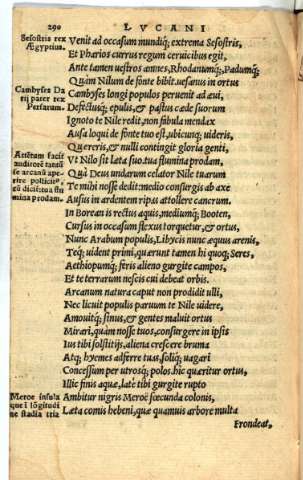 290 LVCANI
Sesostris rex
Aegyptius.
Venit ad occasum mundiq; extrema Sesostris,
Et Pharios currus regum ceruicibus egit,
Ante tamen uestros amnes, Rhodanumq; Padumq;
Quàm Nilum de fonte bibit. uesanus in ortus
Cambyses Da
rij pater rex
Persarum.
Cambyses longi populos peruenit ad aeui,
Defectusq; epulis, & pastus caede suorum
Ignoto te Nile redit, non fabula mendax
Ausa loqui de fonte tuo est, ubicunq; uideris,
Quaereris, & nulli contingit gloria genti,
Vt Nilo sit laeta suo. tua flumina prodam,
Quà Deus undarum celator Nile tuarum
Te mihi nosse dedit: medio consurgis ab axe
Ausus in ardentem ripas attollere cancrum.
In Borean is rectus aquis, mediumq; Booten,
Cursus in occasum flexus torquetur, & ortus,
Nunc Arabum populis, Libycis nunc aequus arenis,
Teq; uident primi, quaerunt tamen hi quoq; Seres,
Aethiopumq; feris alieno gurgite campos,
Et te terrarum nescit cui debeat orbis.
Arcanum natura caput non prodidit ulli,
Nec licuit populis paruum te Nile uidere,
Amouitq; sinus, & gentes maluit ortus
Mirari, quàm nosse tuos, consurgere in ipsis
Ius tibi solstitijs, aliena crescere bruma
Atq; hyemes adferre tuas, soliq; uagari
Concessum per utrosq; polos. hic quaeritur ortus,
Illic finis aquae, latè tibi gurgite rupto
Meroe insula
Ambitur nigris Meroë foecunda colonis,
Laeta comis hebeni, quae quamuis arbore multa
Frondeat,